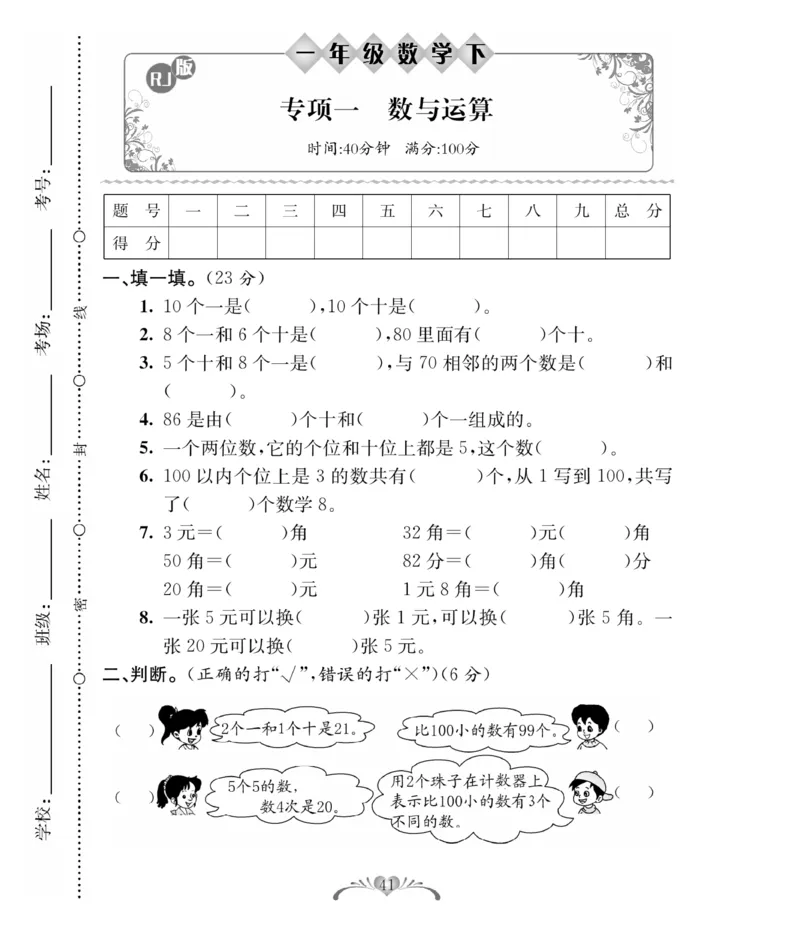 一年级数学下
RJ版
专项一 数与运算
时间:40分钟 满分:100分
题 号 一 二 三 四 五 六 七 八 九 总 分
得 分
一、填一填。(23 分)
1. 10 个一是( ),10 个十是( )。
2. 8 个一和 6 个十是( ),80 里面有( )个十。
3. 5 个十和 8 个一是( ),与 70 相邻的两个数是( )和
( )。
4. 86 是由( )个十和( )个一组成的。
5. 一个两位数,它的个位和十位上都是 5,这个数( )。
6. 100 以内个位上是 3 的数共有( )个,从 1 写到 100,共写
了( )个数学 8。
7. 3 元=( )角 32 角=( )元( )角
50 角=( )元 82 分=( )角( )分
20 角=( )元 1 元 8 角=( )角
8. 一张 5 元可以换( )张 1 元,可以换( )张 5 角。一
张 20 元可以换( )张 5 元。
二、判断。(正确的打“√”,错误的打“×”)(6 分)
( ) 2个一和1个十是21。
比100小的数有99个。 ( )
( ) 5个5的数,
数4次是20。
用2个珠子在计数器上
表示比100小的数有3个
不同的数。 ( )
41
考号:
考场:
姓名:
班级:
学校:
线
封
密